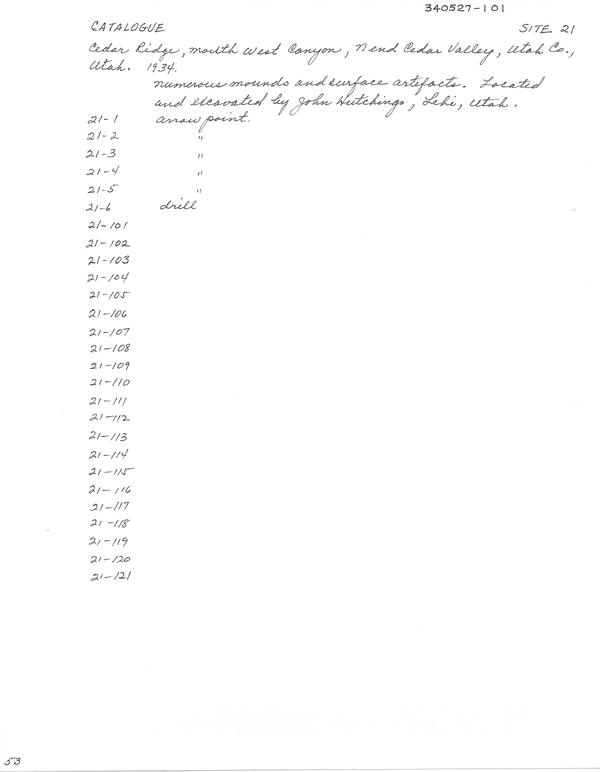 340527-101
CATALOGUE SITE 21
Cedar Ridge, mouth West Canyon, N end Cedar Valley, Utah Co.,
Utah. 1934.
numerous mounds and surface artefacts. Located
and excavated by John Hutchings, Lehi, Utah.
21-1 arrow point.
21-2 "
21-3 "
21-4 "
21-5 "
21-6 drill
21-101
21-102
21-103
21-104
21-105
21-106
21-107
21-108
21-109
21-110
21-111
21-112
21-113
21-114
21-115
21-116
21-117
21-118
21-119
21-120
21-121
53